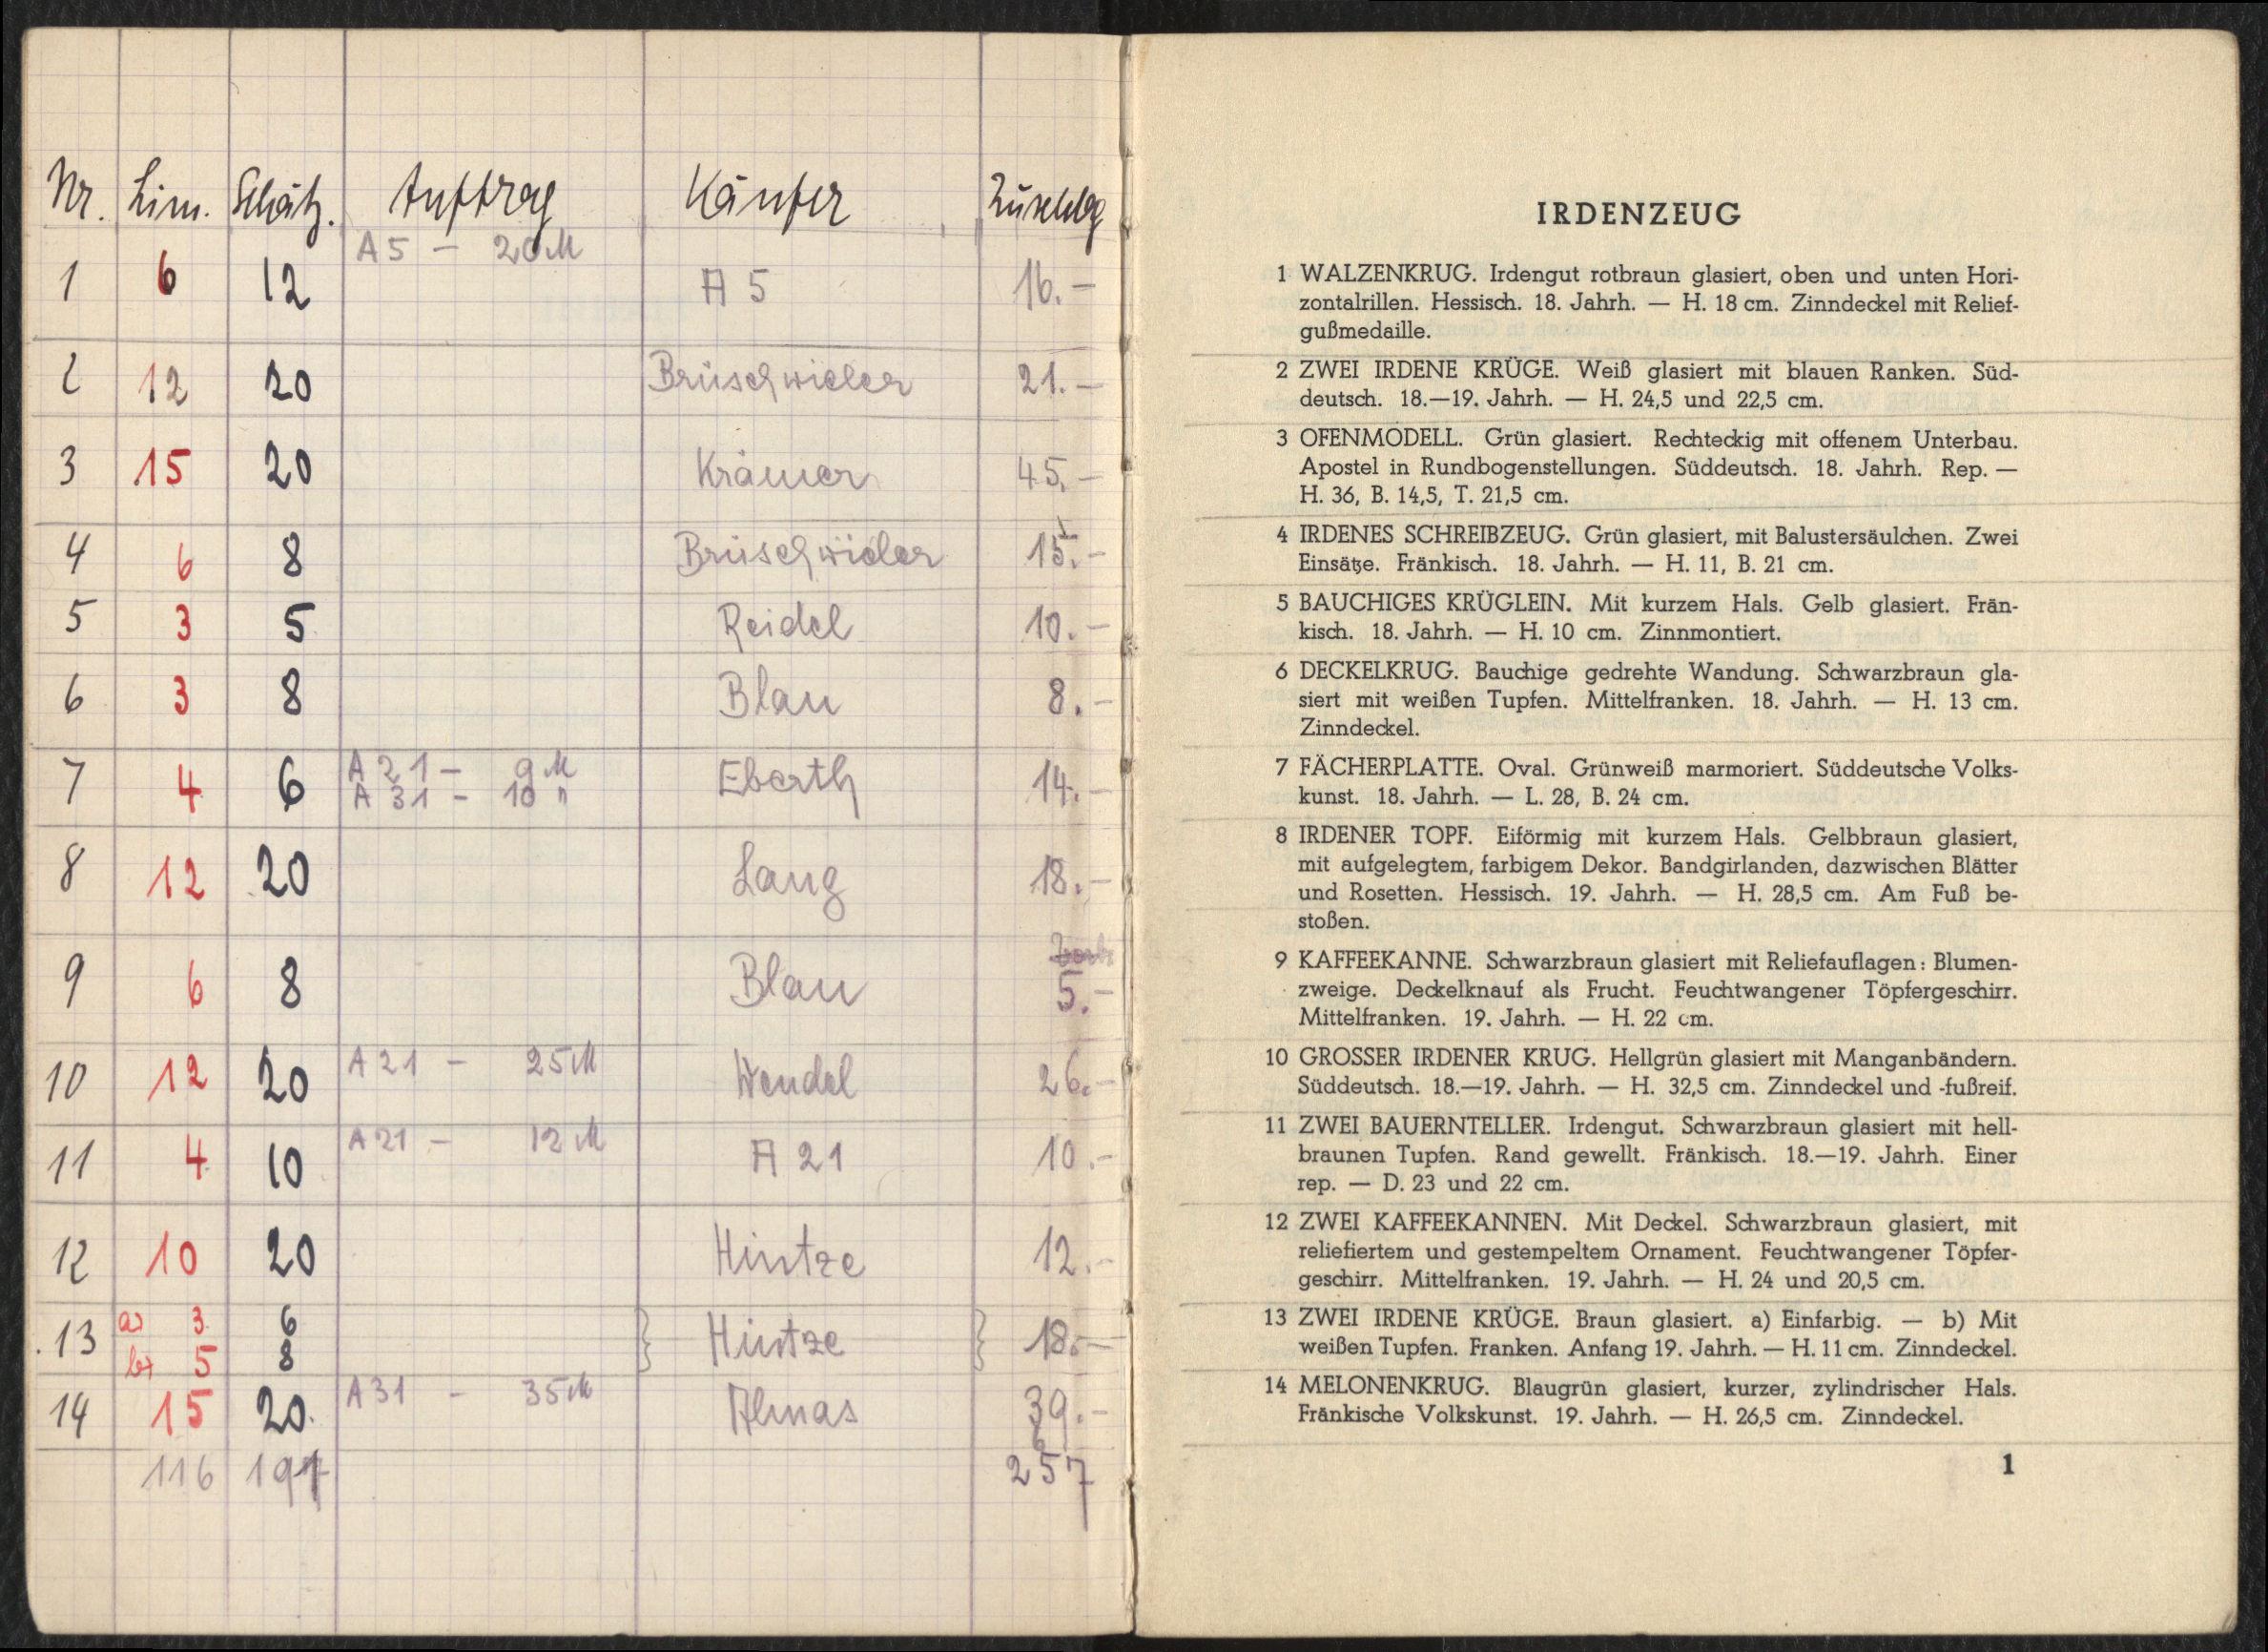 Nr. Lim. Schätz. Auftrag Käufer Zuschlag
A 5 — 20 M
1 6 12 A 5 16.—
2 12 20 Brüschwieler 21.—
3 15 20 Krämer 45.—
4 6 8 Brüschwieler 15.-
5 3 5 Reidel 10.—
6 3 8 Blau 8.-
A 21 — 9 M
7 4 6 Eberth 14.—
A 31 - 10 "
8 12 20 Lang 18.—
9 6 8 Blau 5.-
A 21 — 25 M
10 12 20 Wendel 26.-
A 21 — 12 M
11 4 10 A 21 10.-
12 10 20 Hintze 12.-
a) 3 6
13 } Hintze } 18.—
b) 5 8
A 31 - 35 M
14 15 20. Almas 39.-
116 257
IRDENZEUG
1 WALZENKRUG. Irdengut rotbraun glasiert, oben und unten Hori-
zontalrillen. Hessisch. 18. Jahrh. — H. 18 cm. Zinndeckel mit Relief-
gußmedaille.
2 ZWEI IRDENE KRÜGE. Weiß glasiert mit blauen Ranken. Süd-
deutsch. 18.—19. Jahrh. — H. 24,5 und 22,5 cm.
3 OFENMODELL. Grün glasiert. Rechteckig mit offenem Unterbau.
Apostel in Rundbogenstellungen. Süddeutsch. 18. Jahrh. Rep. —
H. 36, B. 14,5, T. 21,5 cm.
4 IRDENES SCHREIBZEUG. Grün glasiert, mit Balustersäulchen. Zwei
Einsätze. Fränkisch. 18. Jahrh. — H. 11, B. 21 cm.
5 BAUCHIGES KRÜGLEIN. Mit kurzem Hals. Gelb glasiert. Frän-
kisch. 18. Jahrh. — H. 10 cm. Zinnmontiert.
6 DECKELKRUG. Bauchige gedrehte Wandung. Schwarzbraun gla-
siert mit weißen Tupfen. Mittelfranken. 18. Jahrh. — H. 13 cm.
Zinndeckel.
7 FÄCHERPLATTE. Oval. Grünweiß marmoriert. Süddeutsche Volks-
kunst. 18. Jahrh. — L. 28, B. 24 cm.
8 IRDENER TOPF. Eiförmig mit kurzem Hals. Gelbbraun glasiert,
mit aufgelegtem, farbigem Dekor. Bandgirlanden, dazwischen Blätter
und Rosetten. Hessisch. 19. Jahrh. — H. 28,5 cm. Am Fuß be-
stoßen.
9 KAFFEEKANNE. Schwarzbraun glasiert mit Reliefauflagen: Blumen-
zweige. Deckelknauf als Frucht. Feuchtwangener Töpfergeschirr.
Mittelfranken. 19. Jahrh. — H. 22 cm.
10 GROSSER IRDENER KRUG. Hellgrün glasiert mit Manganbändern.
Süddeutsch. 18.—19. Jahrh. — H. 32,5 cm. Zinndeckel und -fußreif.
11 ZWEI BAUERNTELLER. Irdengut. Schwarzbraun glasiert mit hell-
braunen Tupfen. Rand gewellt. Fränkisch. 18.—19. Jahrh. Einer
rep. — D. 23 und 22 cm.
12 ZWEI KAFFEEKANNEN. Mit Deckel. Schwarzbraun glasiert, mit
reliefiertem und gestempeltem Ornament. Feuchtwangener Töpfer-
geschirr. Mittelfranken. 19. Jahrh. — H. 24 und 20,5 cm.
13 ZWEI IRDENE KRÜGE. Braun glasiert. a) Einfarbig. — b) Mit
weißen Tupfen. Franken. Anfang 19. Jahrh. — H. 11 cm. Zinndeckel.
14 MELONENKRUG. Blaugrün glasiert, kurzer, zylindrischer Hals.
Fränkische Volkskunst. 19. Jahrh. — H. 26,5 cm. Zinndeckel.
1